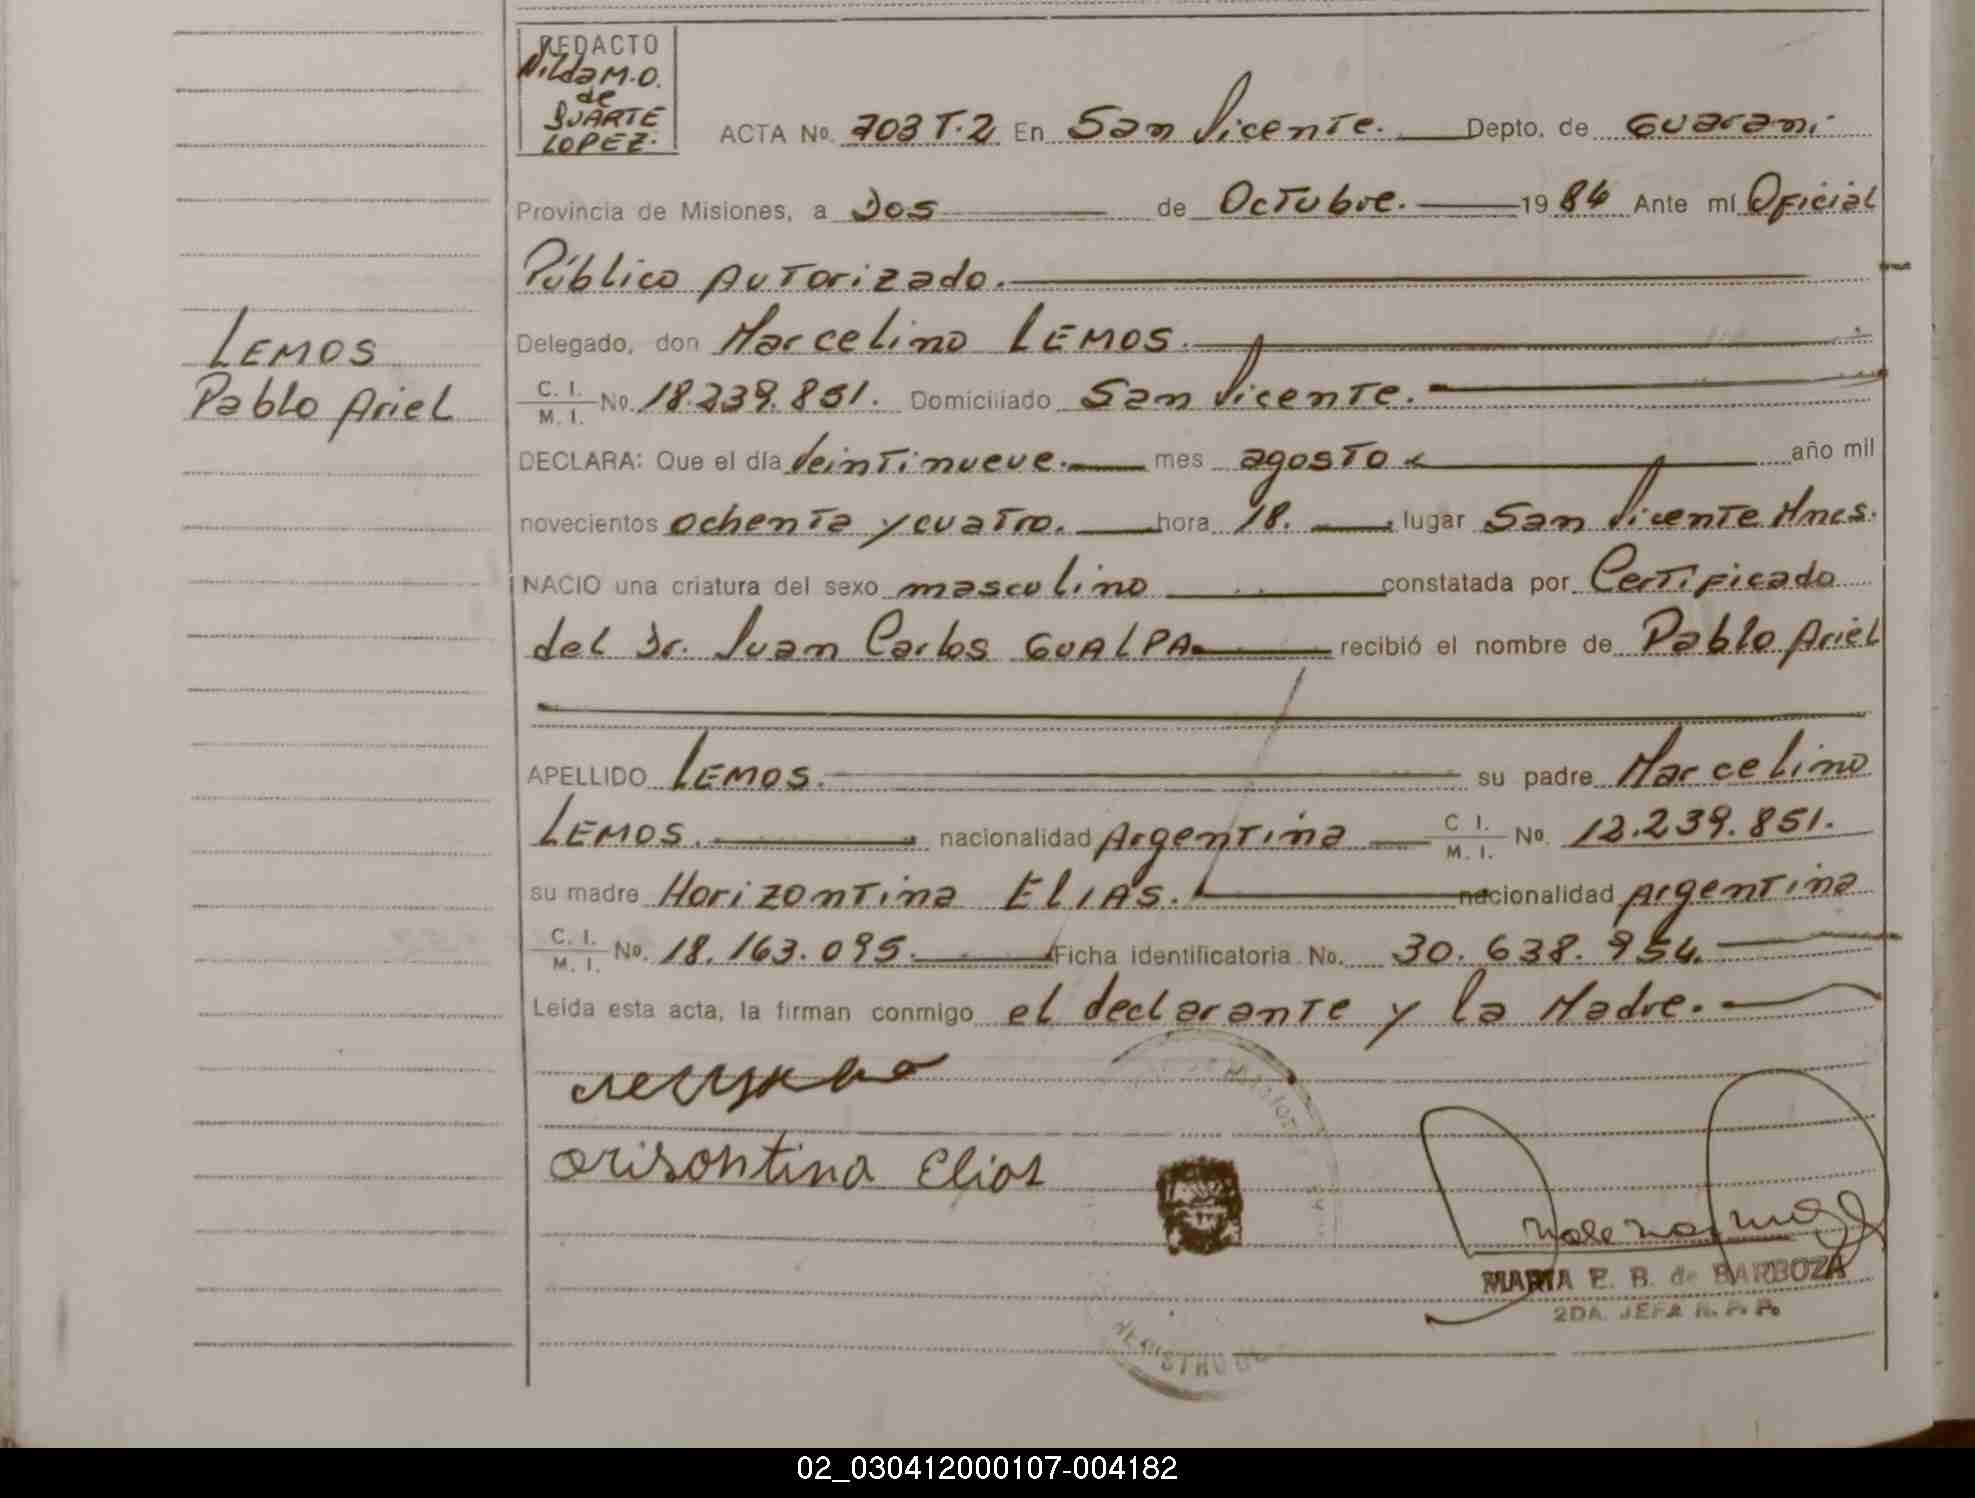 REDACTO
Nilda M.O.
de
DUARTE
LOPEZ.
ACTA No. 703 T.2 En San Vicente. Depto. de Guarani.
Provincia de Misiones, a Dos de Octubre. 1984 Ante mi Oficial
Público Autorizado.
Delegado, don Marcelino LEMOS.
LEMOS
Pablo Ariel
C. I.
M. I. No. 18.239.851. Domiciliado San Vicente.
DECLARA: Que el día Veintinueve. mes agosto año mil
novecientos ochenta y cuatro. hora 18. lugar San Vicente Mnes.
NACIO una criatura del sexo masculino constatada por Certificado
del Dr. Juan Carlos GUALPA recibió el nombre de Pablo Ariel
APELLIDO LEMOS. su padre Marcelino
LEMOS. nacionalidad Argentina C I.
M. I. No. 12.239.851.
su madre Horizontina ELIAS. nacionalidad Argentina
C. I.
M. I. No. 18.163.095. Ficha identificatoria No. 30.638.954.
Leída esta acta, la firman conmigo el declarante y la Madre.
orisontina Elias
MARIA E. B. de BARBOZA
2DA. JEFA R. P. P.
REGISTRO DE
02_030412000107-004182